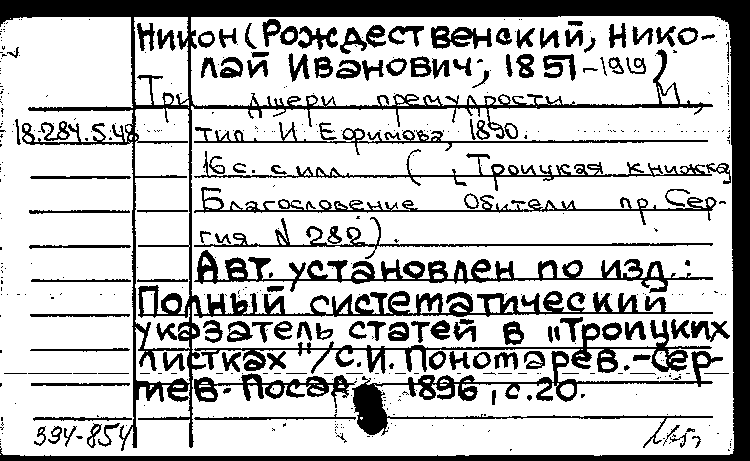 Никон (Рождественский, Нико-
лай Иванович, 1851-1919)
Три дщери премудрости. М.,
18.284.5.48 тип. И. Ефимова, 1890.
16 с. с илл. ( [Троицкая книжка
Благословение Обители пр. Сер-
гия N 282).
Авт. установлен по изд.:
Полный систематический
указатель статей в „Троицких
листках"/С.И. Пономарев.-Сер-
гиев-Посад 1896, с.20.
394-854